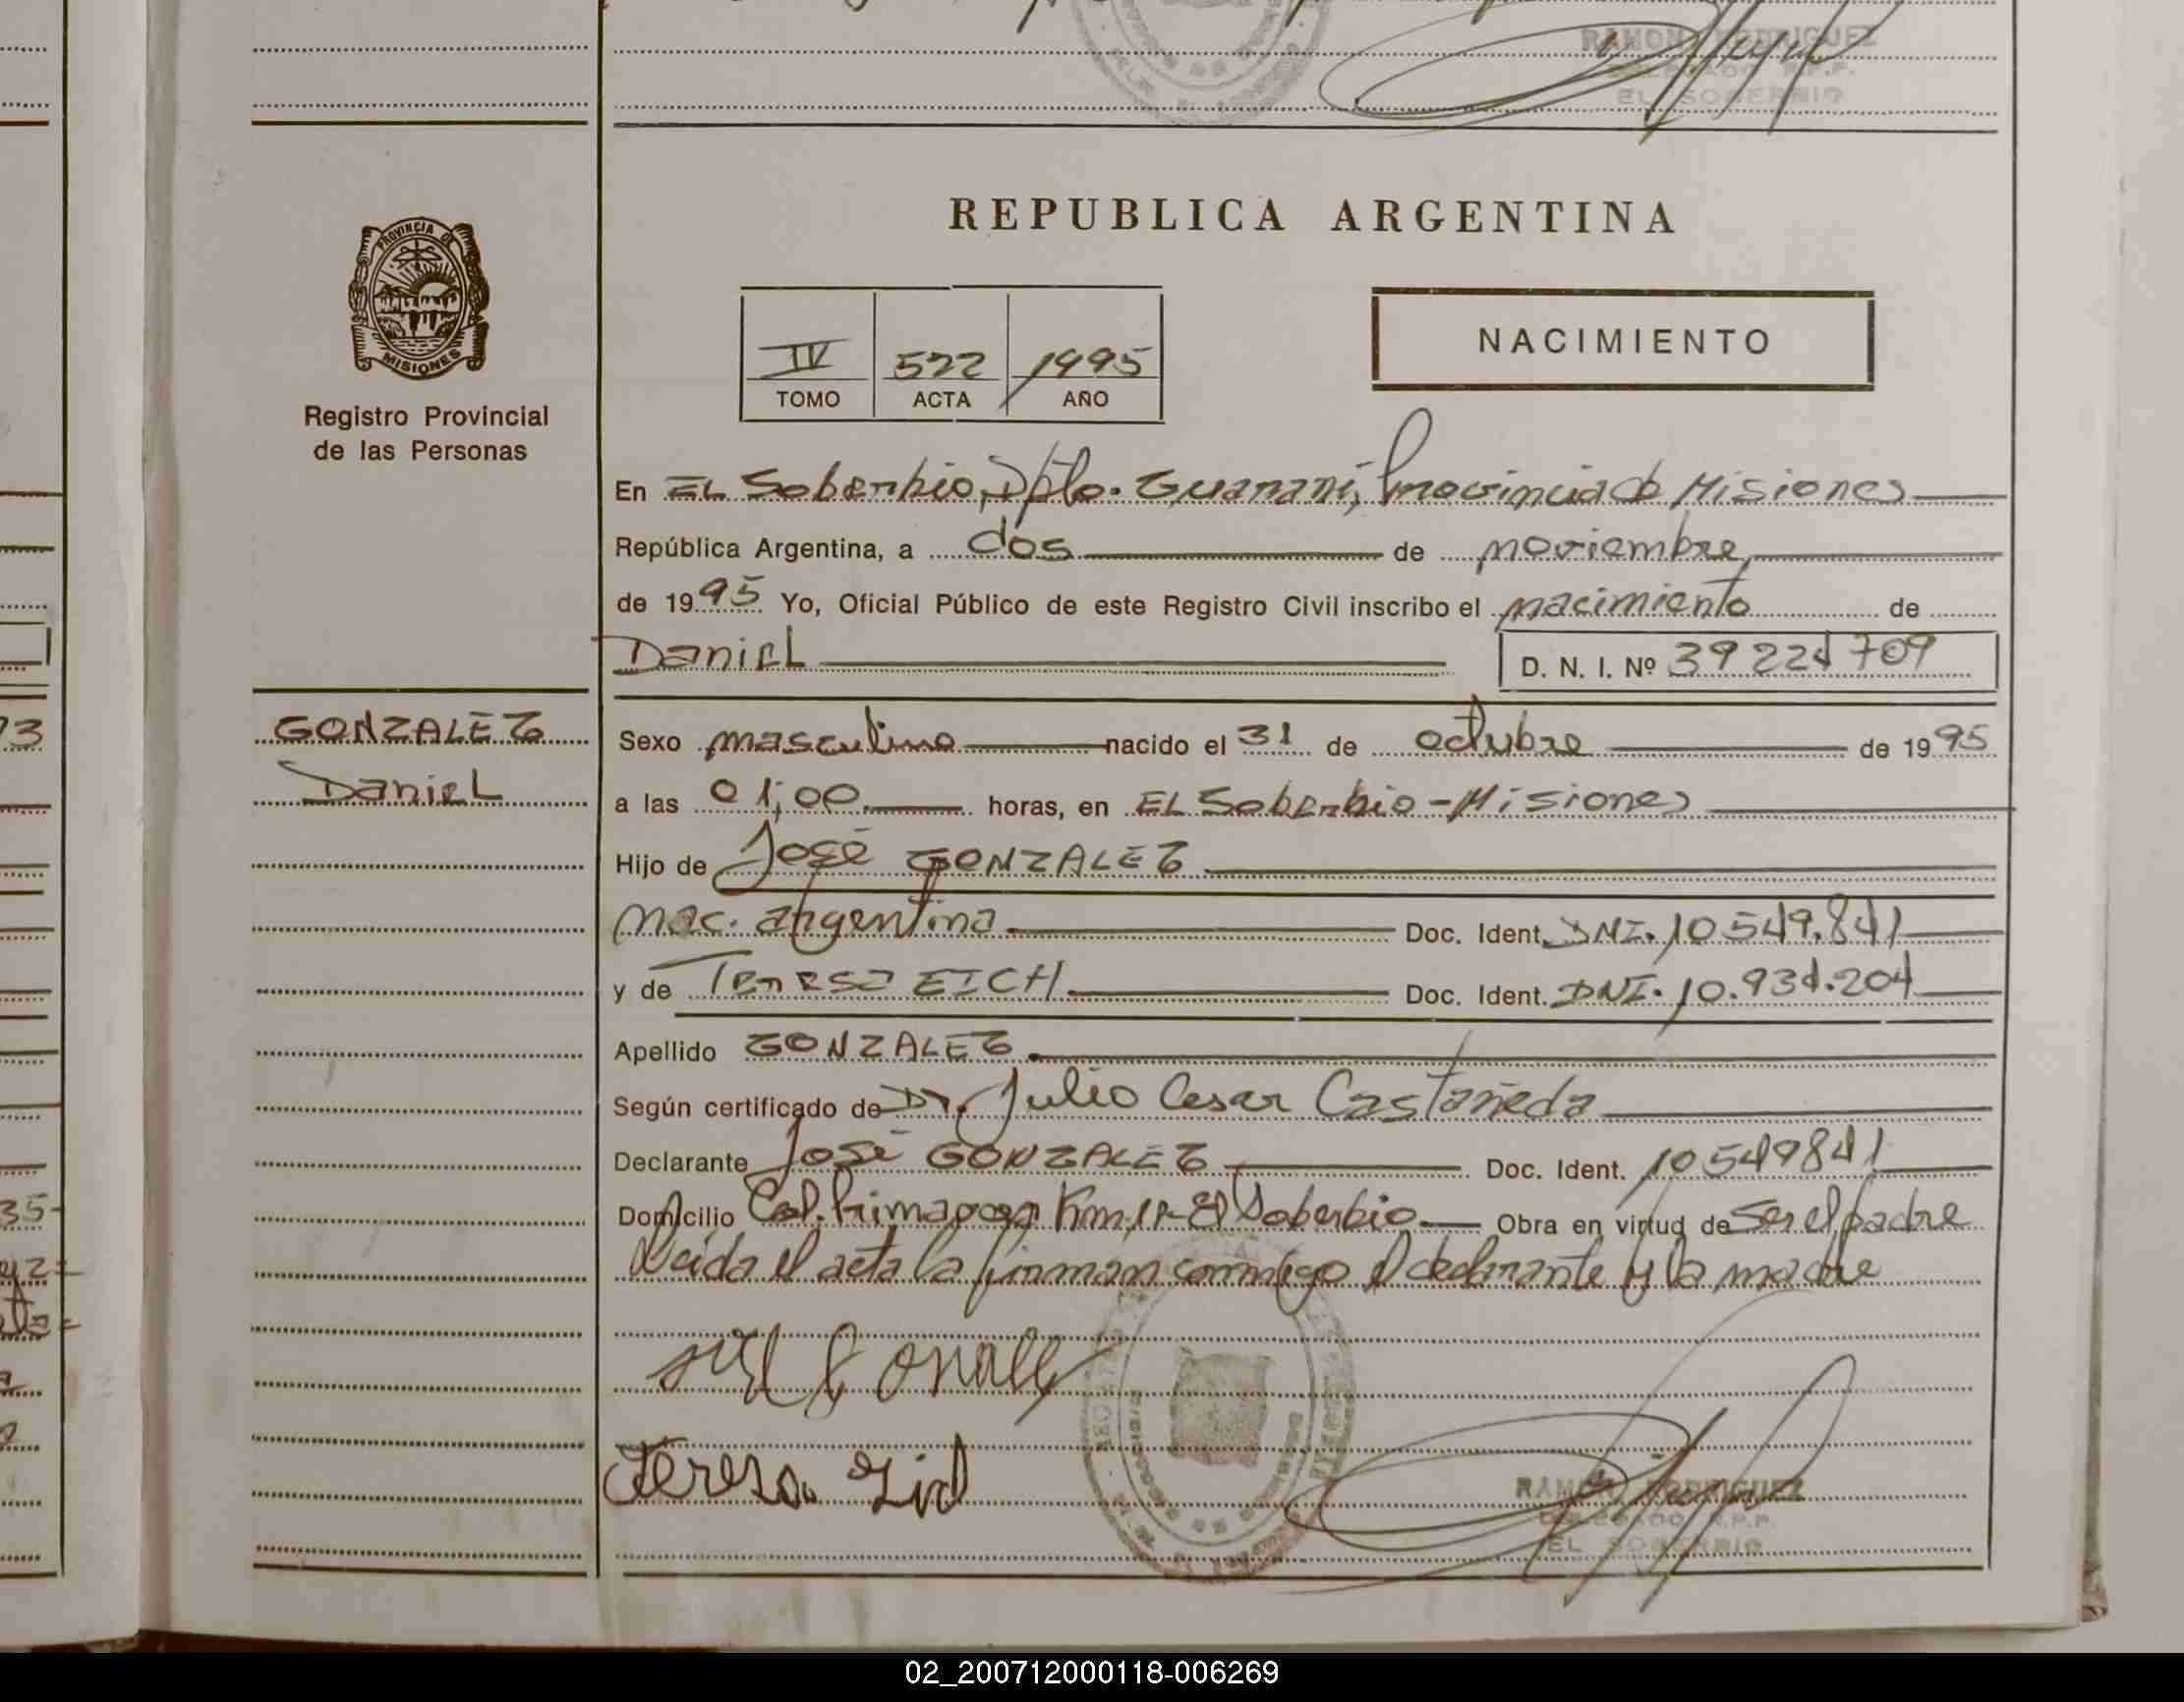 RAMON RODRIGUEZ
DELEGADO R.P.P.
EL SOBERBIO
PROVINCIA DE
MISIONES
Registro Provincial
de las Personas
GONZALEZ
Daniel
REPUBLICA ARGENTINA
IV 522 1995
TOMO ACTA AÑO
NACIMIENTO
En EL Soberbio, Dpto. Guaraní, Provincia de Misiones
República Argentina, a dos de noviembre,
de 1995 Yo, Oficial Público de este Registro Civil inscribo el nacimiento de
Daniel D. N. I. Nº 39221709
Sexo masculino nacido el 31 de octubre de 1995
a las 01,00 horas, en EL Soberbio - Misiones
Hijo de José GONZALEZ
nac. argentina Doc. Ident. DNI. 10.549.841
y de Teresa EICH Doc. Ident. DNI. 10.931.204
Apellido GONZALEZ
Según certificado de Dr. Julio Cesar Castañeda
Declarante José GONZALEZ Doc. Ident. 10549841
Domicilio Col. Km El Soberbio Obra en virtud de Ser el padre
Leida el acta la firman conmigo el declarante y la madre
Teresa
RAMON RODRIGUEZ
DELEGADO R.P.P.
EL SOBERBIO
02_200712000118-006269